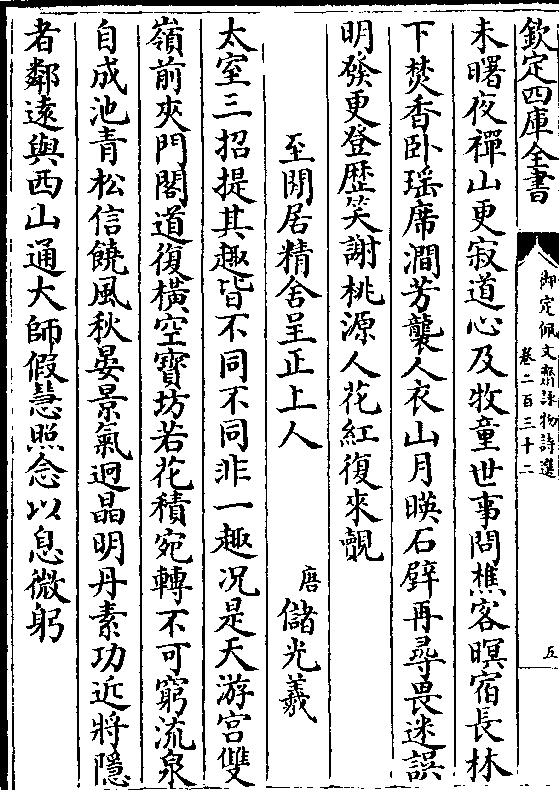 欽定四庫全書
御定佩文齋詠物詩選
卷二百三十二
五
未曙夜禪山更寂道心及牧童世事問樵客暝宿長林
下焚香臥瑤席澗芳襲人衣山月暎石壁再尋畏迷誤
明發更登歷笑謝桃源人花紅復來覿
至閒居精舍呈正上人
唐儲光羲
太室三招提其趣皆不同不同非一趣况是天游宫雙
嶺前夾門閣道復橫空寶坊若花積宛轉不可窮流泉
自成池青松信饒風秋晏景氣迥晶明丹素功近將隱
者鄰遠與西山通大師假慧照念以息微躬